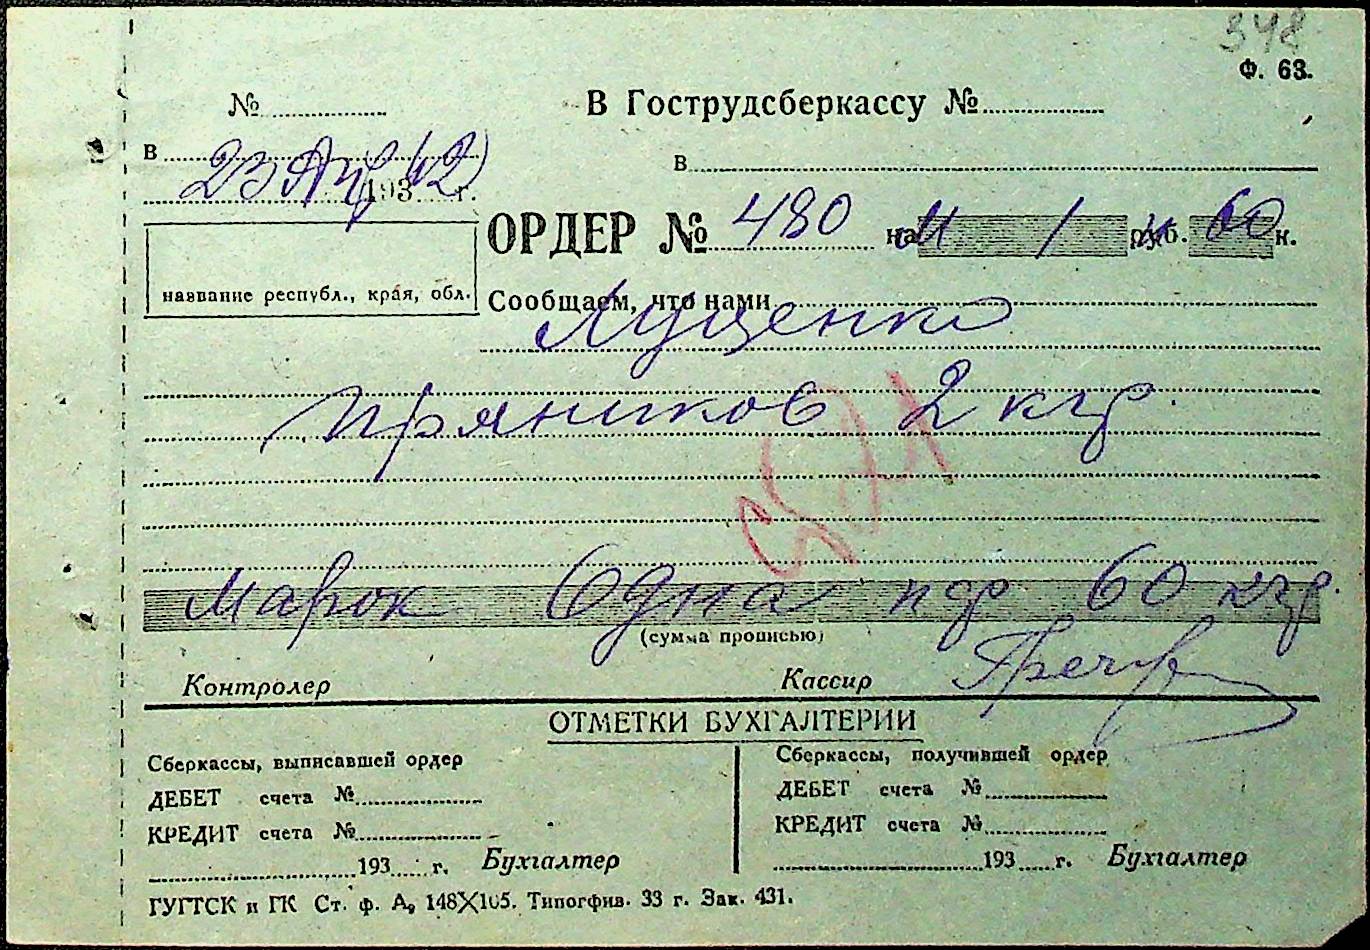 348
Ф. 63.
№ В Гострудсберкассу №
в в
23 Апр 42
193 г.
ОРДЕР № 480 на М 1 руб. 60 к.
название республ., края, обл.
Сообщаем, что нами
Луценко
Пряников 2 кгр.
Марок Одна пф 60 кгр.
(сумма прописью)
Контролер Кассир
ОТМЕТКИ БУХГАЛТЕРИИ
Сберкассы, выписавшей ордер Сберкассы, получившей ордер
ДЕБЕТ счета № ДЕБЕТ счета №
КРЕДИТ счета № КРЕДИТ счета №
193 г. Бухгалтер 193 г. Бухгалтер
ГУГТСК и ГК Ст. ф. А₆ 148X105. Типогфив. 33 г. Зак. 431.